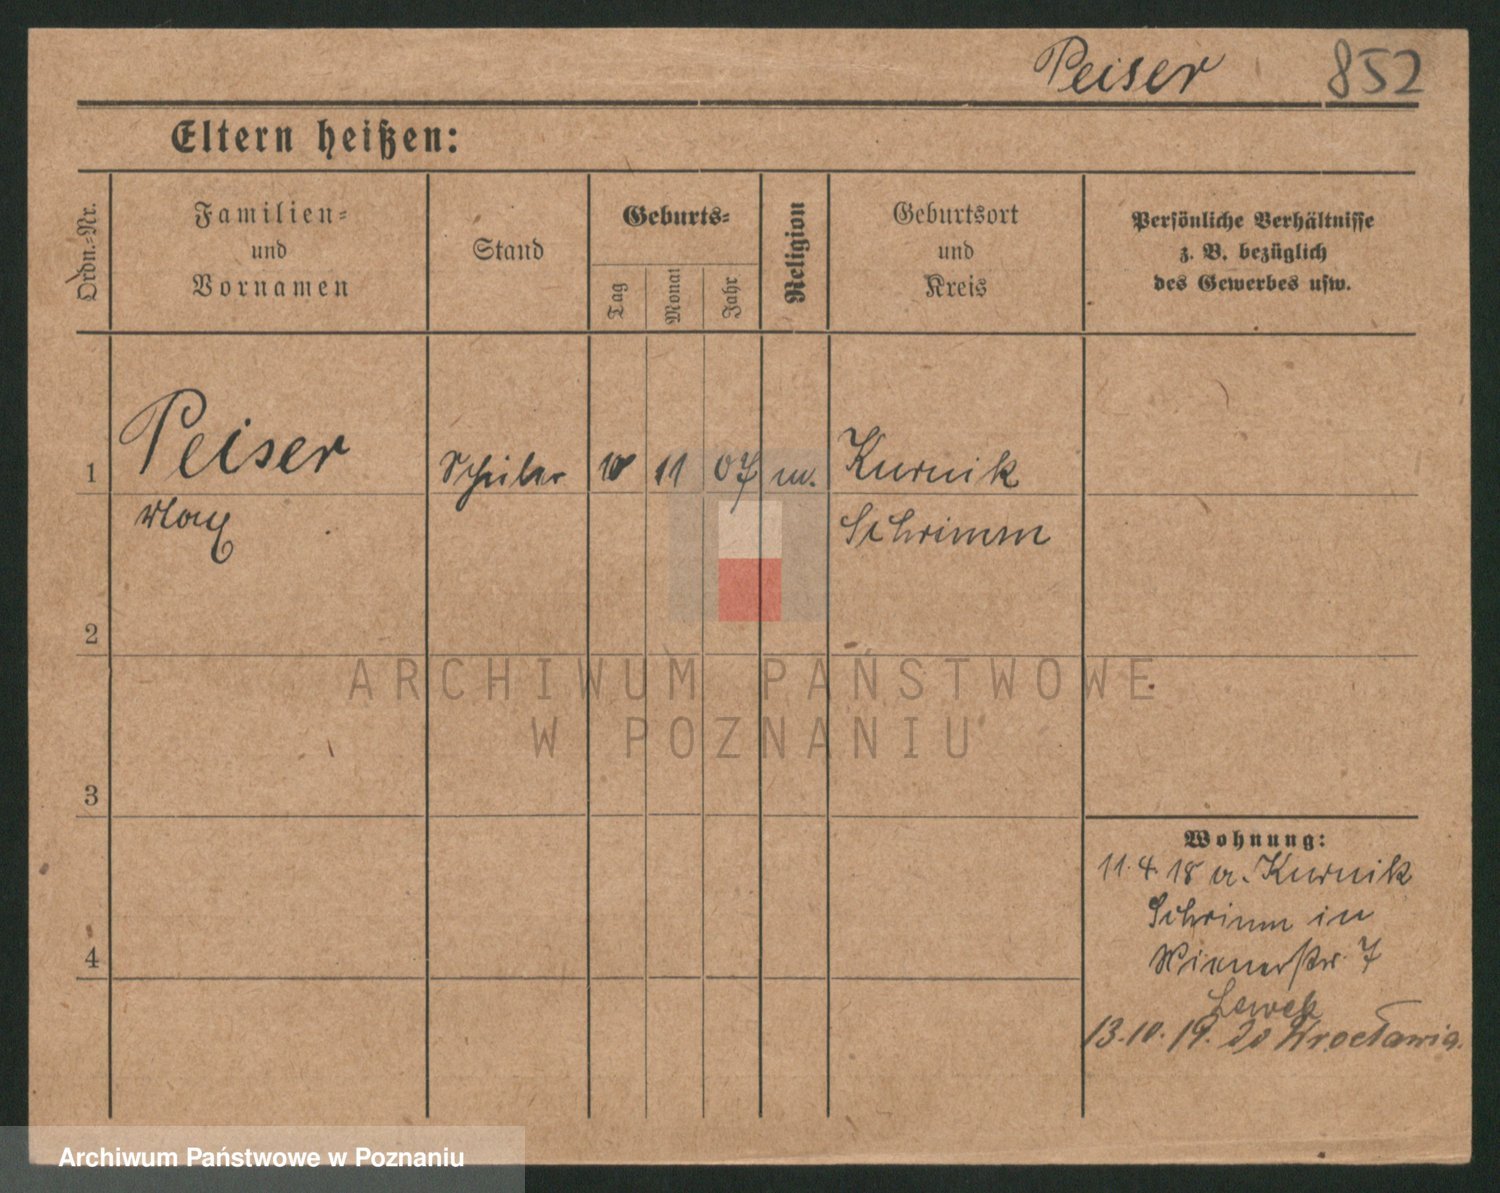 Peiser 852
Eltern heißen:
Ordn.-Nr.
Familien-
und
Vornamen
Stand
Geburts-
Tag
Monat
Jahr
Religion
Geburtsort
und
Kreis
Persönliche Verhältnisse
z. B. bezüglich
des Gewerbes usw.
1 Peiser Schüler 10 11 07 m. Kurnik
Max Schrimm
2
3
4
Wohnung:
11.4.18 a. Kurnik
Schrimm in
Wienerstr. 7
13.10.19. do Wrocławia.
ARCHIWUM PAŃSTWOWE
W POZNANIU
Archiwum Państwowe w Poznaniu